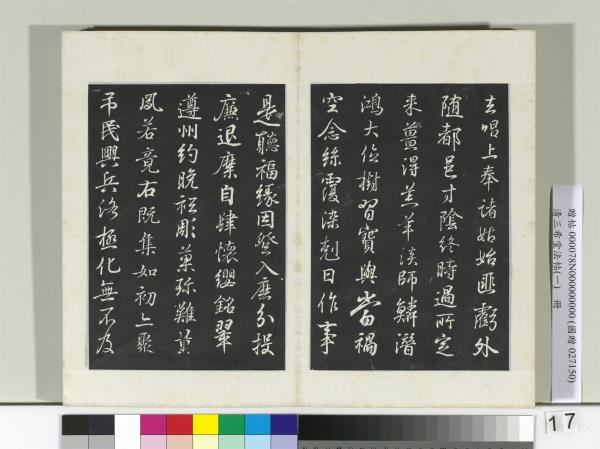 去唱上奉諸姑始匪虧外
随都邑寸陰終時過所定
来薑得羔羊淡師鱗潛
鴻大位樹習寶與當禍
空念絲覆染剋日作事
是聽福緣因登入庶分投
廉退縻自肆懷纓銘翠
遵州約晚祗彫菓珍難
夙若竟右既集如初上聚
弔民興兵洛極化無不及
贈帖 000078N00000000 (國贈 027150)
清三希堂法帖(一) 冊
17